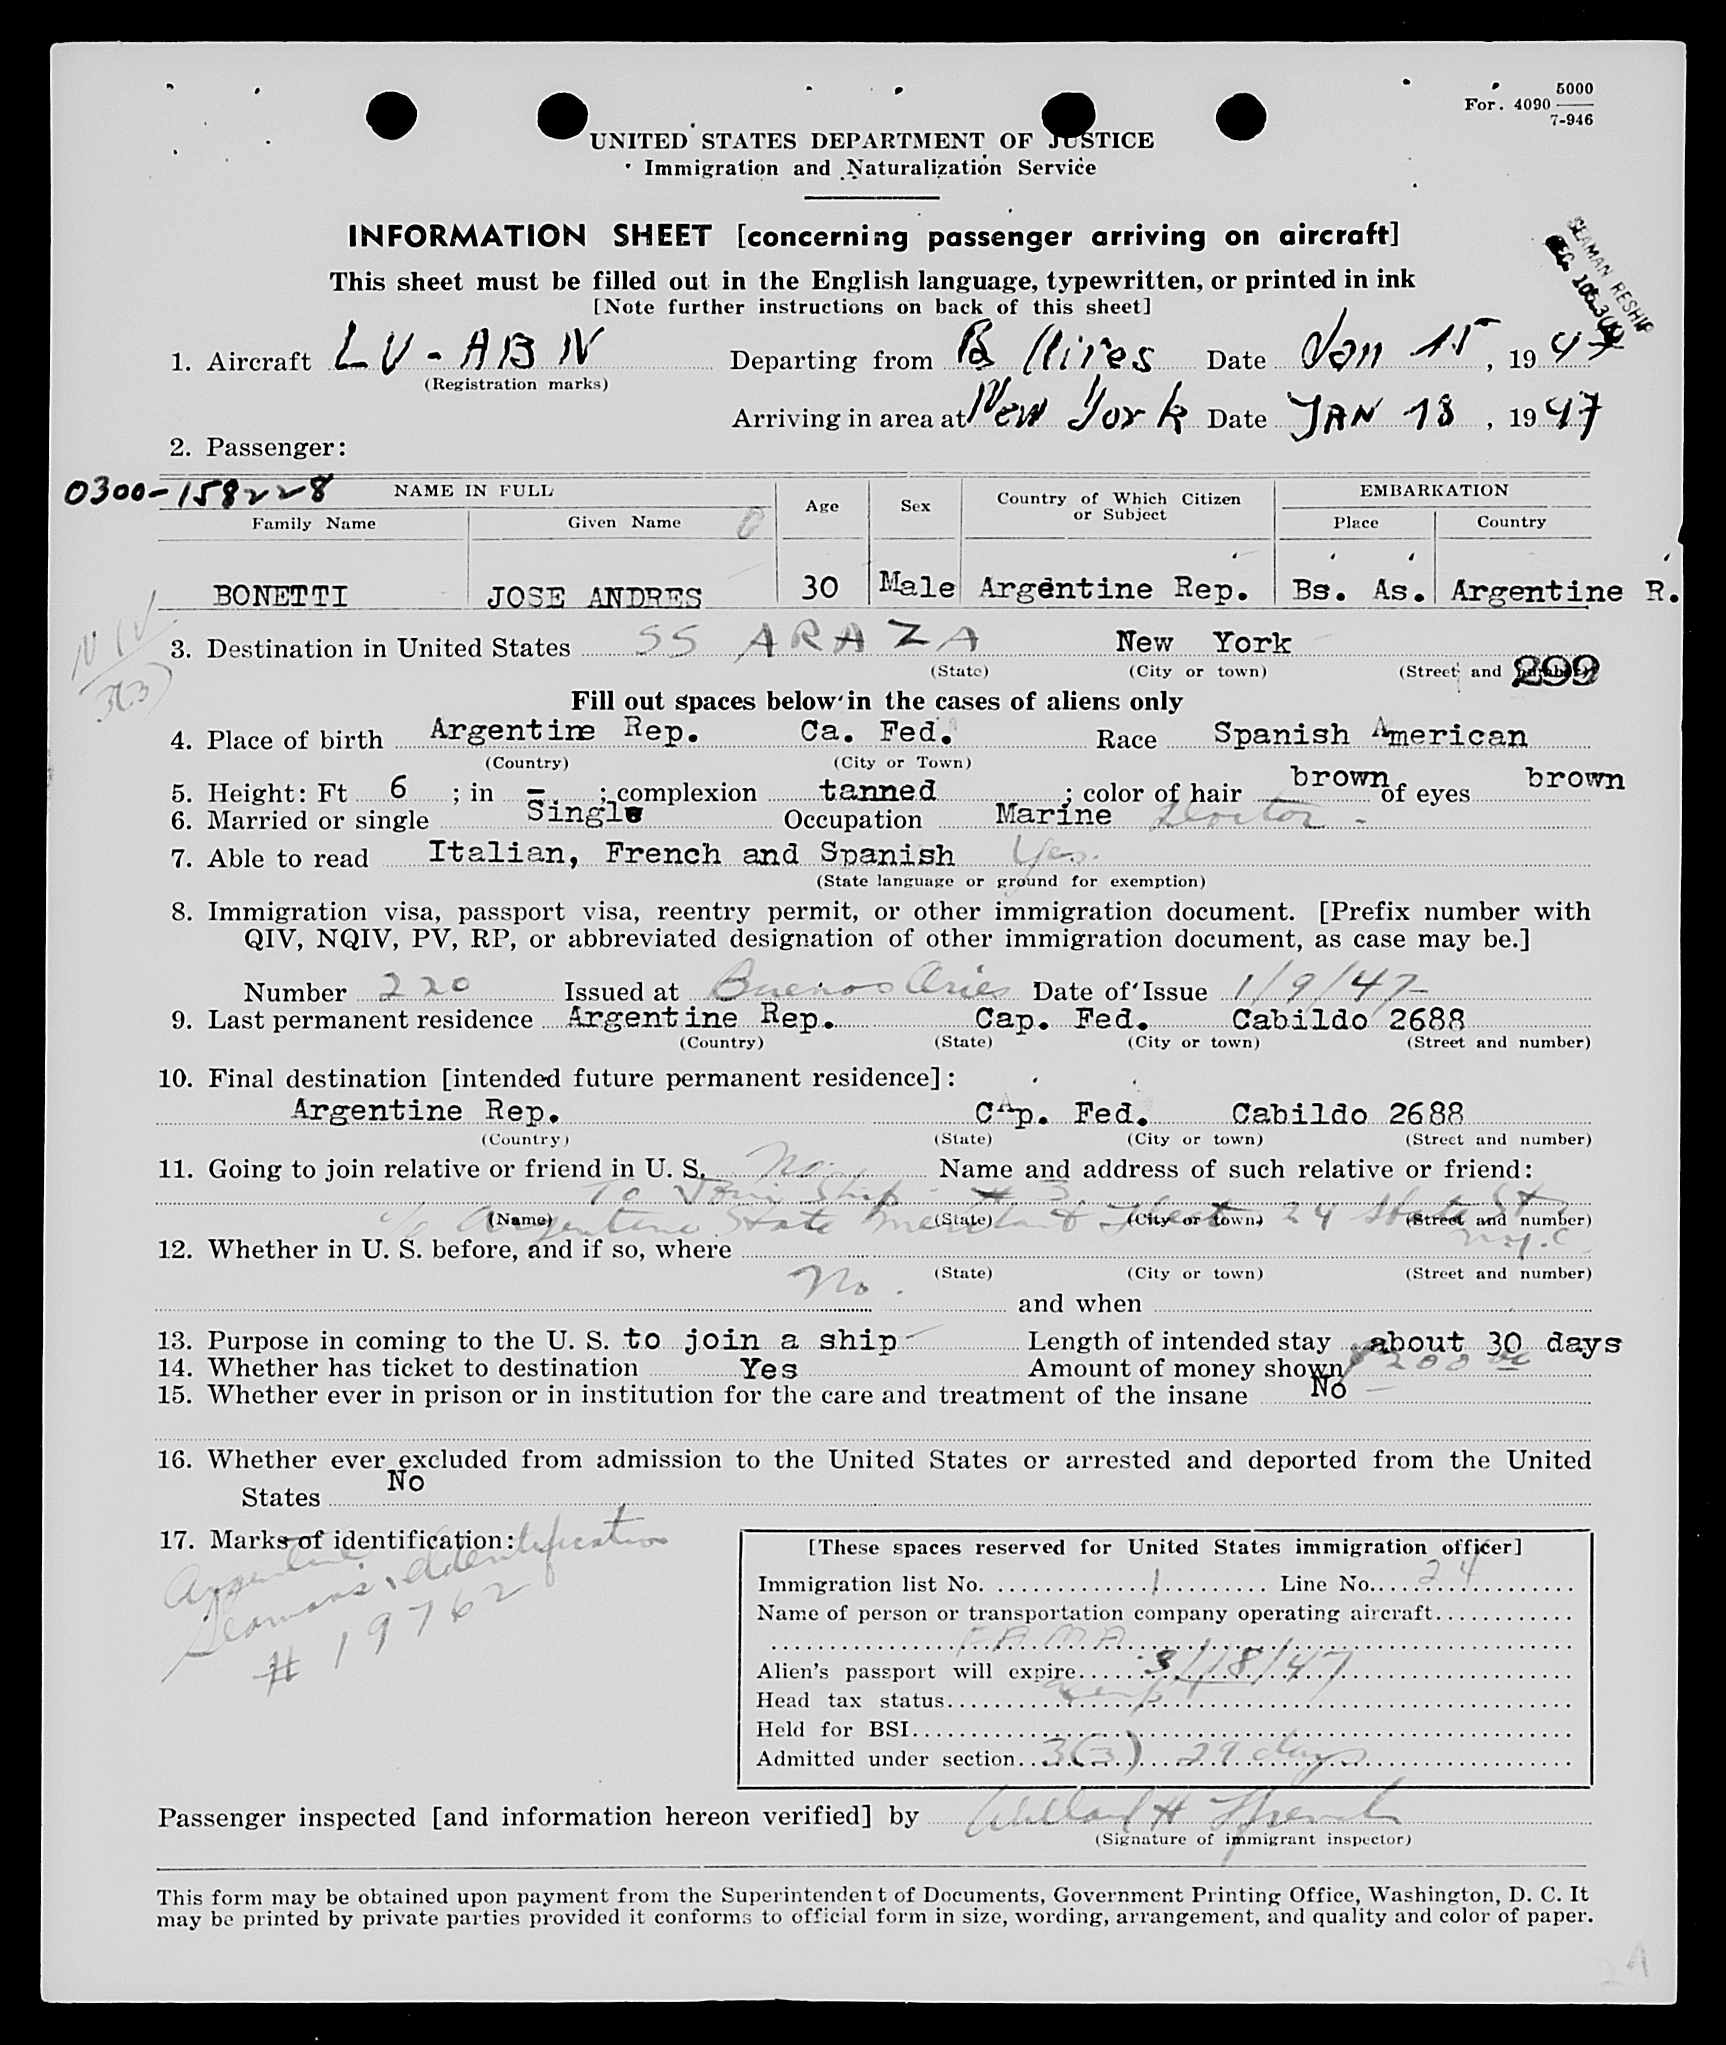 5000
For. 4090
7-946
UNITED STATES DEPARTMENT OF JUSTICE
Immigration and Naturalization Service
INFORMATION SHEET [concerning passenger arriving on aircraft]
This sheet must be filled out in the English language, typewritten, or printed in ink
[Note further instructions on back of this sheet]
SEAMAN RESHIP
1. Aircraft LV-ABN Departing from Bs Aires Date Jan 15, 1947
(Registration marks)
Arriving in area at New York Date JAN 18, 1947
2. Passenger:
0300-158228 NAME IN FULL Age Sex Country of Which Citizen or Subject EMBARKATION
Family Name Given Name Place Country
BONETTI JOSE ANDRES 30 Male Argentine Rep. Bs. As. Argentine R.
3. Destination in United States SS ARAZA New York
(State) (City or town) (Street and number)
299
Fill out spaces below in the cases of aliens only
4. Place of birth Argentine Rep. Ca. Fed. Race Spanish American
(Country) (City or Town)
5. Height: Ft 6 ; in - ; complexion tanned ; color of hair brown of eyes brown
6. Married or single Single Occupation Marine Doctor -
7. Able to read Italian, French and Spanish Yes.
(State language or ground for exemption)
8. Immigration visa, passport visa, reentry permit, or other immigration document. [Prefix number with
QIV, NQIV, PV, RP, or abbreviated designation of other immigration document, as case may be.]
Number 220 Issued at Buenos Aries Date of Issue 1/9/47
9. Last permanent residence Argentine Rep. Cap. Fed. Cabildo 2688
(Country) (State) (City or town) (Street and number)
10. Final destination [intended future permanent residence]:
Argentine Rep. CAp. Fed. Cabildo 2688
(Country) (State) (City or town) (Street and number)
11. Going to join relative or friend in U. S. No. Name and address of such relative or friend:
To Join Ship # 3
c/o Argentine State Merchant Fleet 24 State St
(Name) (State) (City or town) (Street and number)
N.Y.C.
12. Whether in U. S. before, and if so, where
No. (State) (City or town) (Street and number)
and when
13. Purpose in coming to the U. S. to join a ship Length of intended stay about 30 days
14. Whether has ticket to destination Yes Amount of money shown $200 00
15. Whether ever in prison or in institution for the care and treatment of the insane No
16. Whether ever excluded from admission to the United States or arrested and deported from the United
States No
17. Marks of identification:
Argentine
Seamans Identification
# 19762
[These spaces reserved for United States immigration officer]
Immigration list No. 1 Line No. 24
Name of person or transportation company operating aircraft
FAMA
Alien's passport will expire 3/18/47
Head tax status
Held for BSI
Admitted under section 3(3) 29 days
Passenger inspected [and information hereon verified] by Willard H
(Signature of immigrant inspector)
This form may be obtained upon payment from the Superintendent of Documents, Government Printing Office, Washington, D. C. It
may be printed by private parties provided it conforms to official form in size, wording, arrangement, and quality and color of paper.